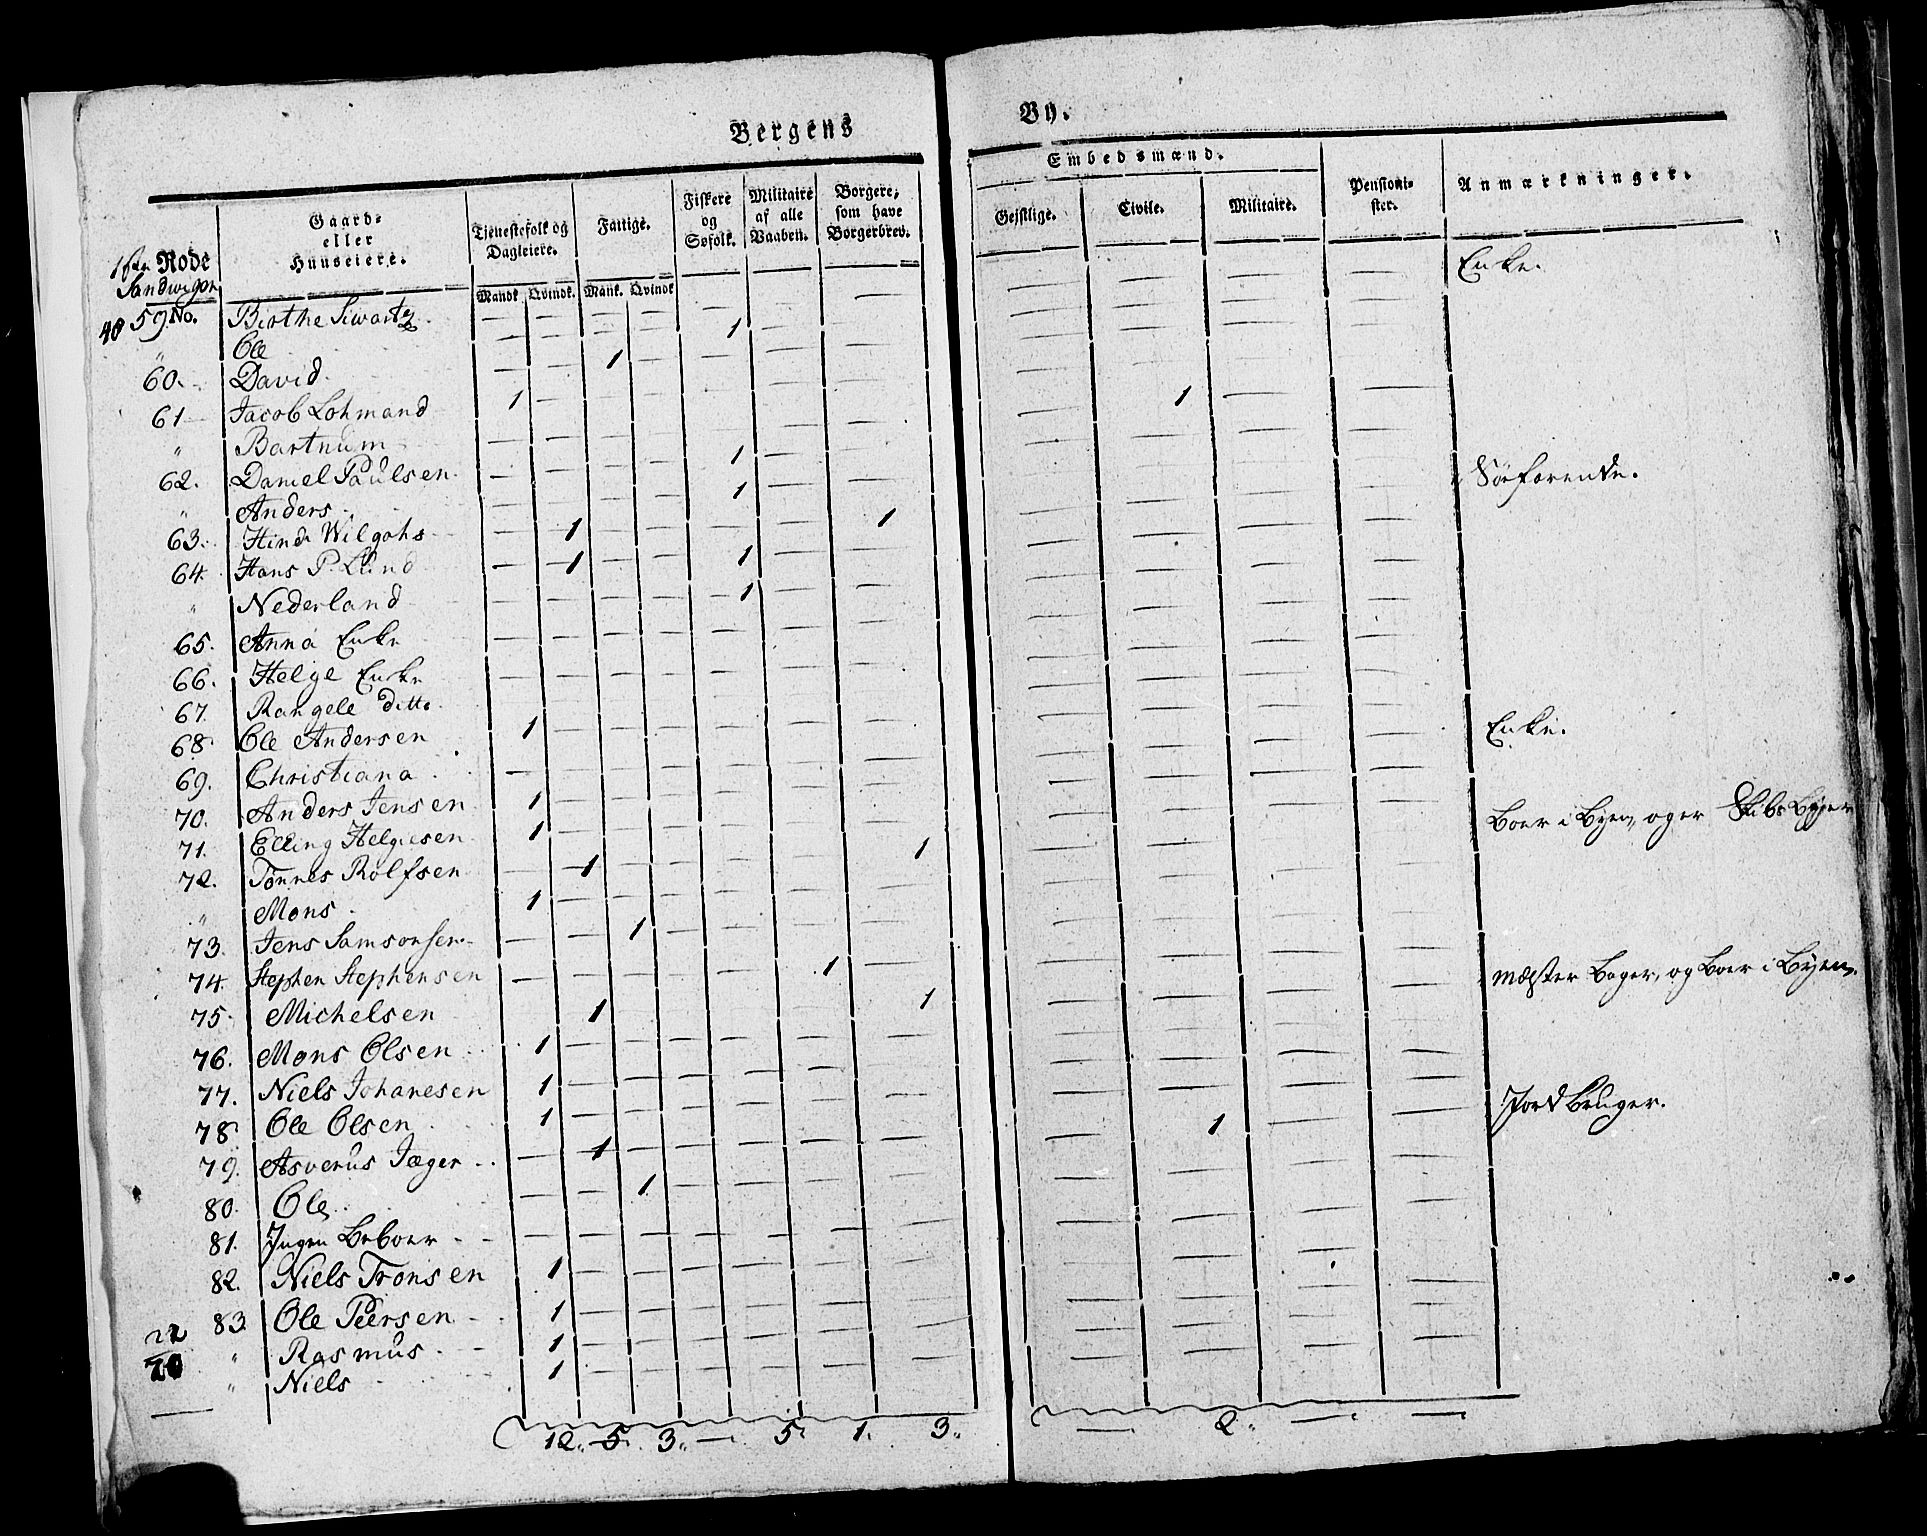 Bergens By.
1ste Rode
Sandwigen
No.
Gaard- eller Huuseiere.
Tjenestefolk og Dagleiere.
Mandk. Qvindk.
Fattige.
Mank. Qvindk.
Fiskere og Søfolk.
Militaire af alle Vaaben.
Borgere, som have Borgerbrev.
Embedsmænd.
Gejstlige. Civile. Militaire.
Pensionister.
Anmærkninger.
48 59 Birthe Swartz. — — — — — — — — — — — Enke.
" Ole — — — — 1 — — — — — —
60. David. — — 1 — — — — — — — —
61 Jacob Lohmand 1 — — — — — — — — — —
" Bartnum — — — — — — — — 1 — —
62. Daniel Paulsen. — — — — 1 — — — — — —
" Anders — — — — 1 — — — — — — Söefarende.
63. Hind. Wilgohs — 1 — — — — 1 — — — —
64. Hans P. Lund — 1 — — 1 — — — — — —
" Nederland — — — — 1 — — — — — —
65. Anna Enke — — — — — — — — — — —
66. Helge Enke — — — — — — — — — — —
67. Rangele Ditto. — — — — — — — — — — —
68. Ole Andersen 1 — — — — — — — — — —
69. Christiana — — — — — — — — — — — Enke.
70. Anders Jensen 1 — — — — — — — — — —
71. Elling Helgesen 1 — — — — — — — — — —
72. Tönnes Rolfsen — 1 — — — — 1 — — — — Boer i Byen, og er Skibs Bÿger
" Mons 1 — — — — — — — — — —
73. Jens Samsonsen. — — 1 — — — — — — — —
74. Stephen Stephensen — — — — — 1 — — — — —
75. Michelsen — 1 — — — — 1 — — — — Mæster Bager, og Boer i Byen.
76. Mons Olsen 1 — — — — — — — — — —
77. Niels Johanesen 1 — — — — — — — — — —
78. Ole Olsen 1 — — — — — — — — — —
79. Asverus Jæger — 1 — — — — — — 1 — — Jord Bruger.
80. Ole — — 1 — — — — — — — —
81. Ingen Beboer — — — — — — — — — — —
82. Niels Tronsen 1 — — — — — — — — — —
83 Ole Peersen 1 — — — — — — — — — —
" Rasmus 1 — — — — — — — — — —
" Niels 1 — — — — — — — — — —
12. 5. 3. — 5. 1. 3. — 2. — —